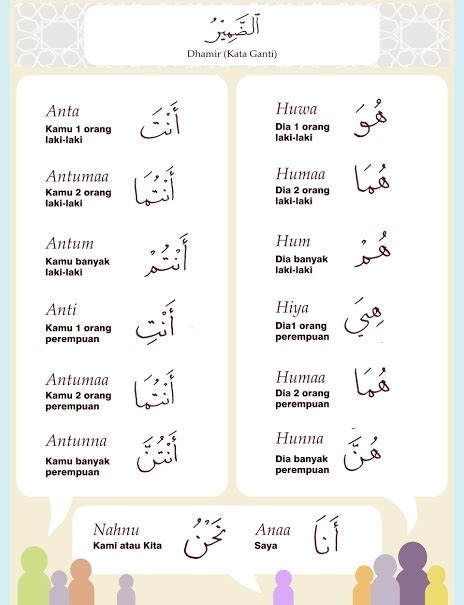 اَلضَّمِيْرُ
Dhamir (Kata Ganti)
Anta
Kamu 1 orang
laki-laki
أَنْتَ
Antumaa
Kamu 2 orang
laki-laki
أَنْتُمَا
Antum
Kamu banyak
laki-laki
أَنْتُمْ
Anti
Kamu 1 orang
perempuan
أَنْتِ
Antumaa
Kamu 2 orang
perempuan
أَنْتُمَا
Antunna
Kamu banyak
perempuan
أَنْتُنَّ
Huwa
Dia 1 orang
laki-laki
هُوَ
Humaa
Dia 2 orang
laki-laki
هُمَا
Hum
Dia banyak
laki-laki
هُمْ
Hiya
Dia1 orang
perempuan
هِيَ
Humaa
Dia 2 orang
perempuan
هُمَا
Hunna
Dia banyak
perempuan
هُنَّ
Nahnu
Kami atau Kita
نَحْنُ
Anaa
Saya
أَنَا